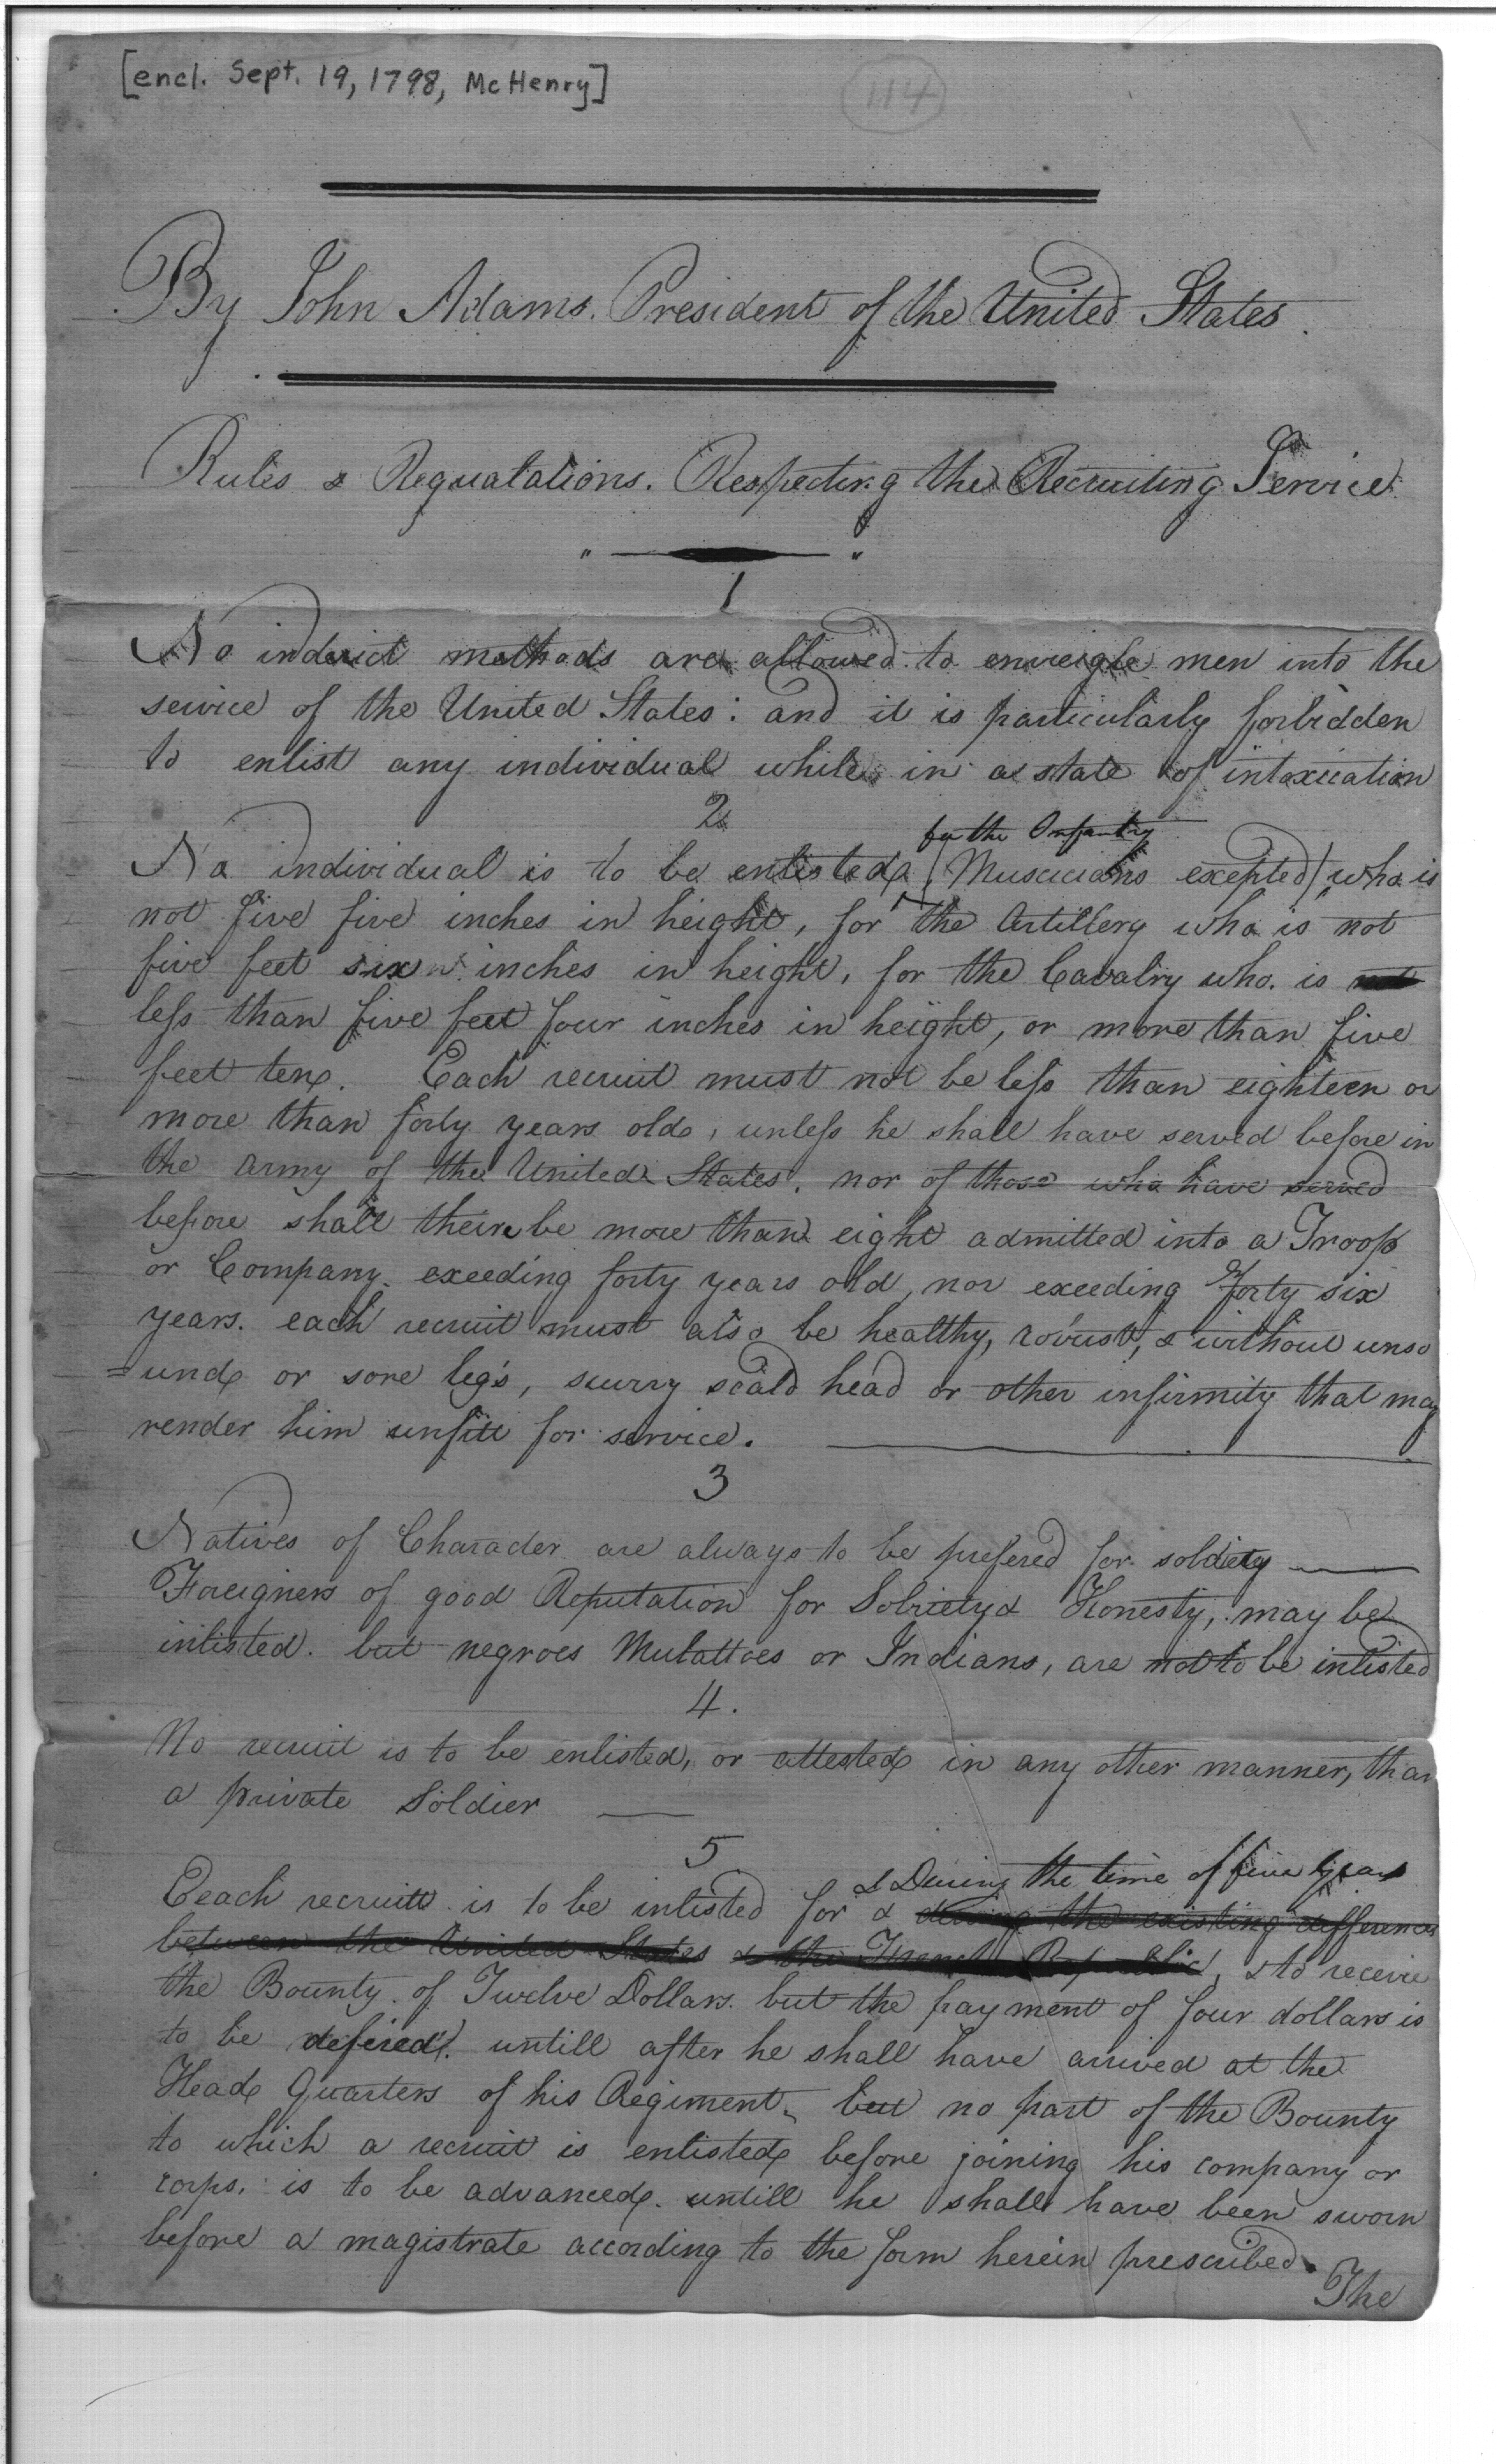 [encl. Sept. 19, 1798, McHenry]
114
By John Adams. President of the United States.
Rules & Regualations. Respecting the Recruiting Service
1
No indirict methods are allowed to enveigle men into the
service of the United States: and it is particularly forbidden
to enlist any individual while in a state of intoxication
2
for the Infantry
No individual is to be enlisted, (Musicians excepted) who is
not five five inches in height, for the Artillery who is not
five feet six inches in height, for the Cavalry who is not
less than five feet four inches in height, or more than five
feet ten. Each recruit must not be less than eighteen or
more than forty years old, unless he shall have served before in
the army of the United States, nor of those who have served
before shall their be more than eight admitted into a Troop
or Company exeeding forty years old, nor exeeding forty six
years. each recruit must also be healthy, robust, & without unso
=und or sore leg's, scurvy scald head or other infirmity that may
render him unfitt for service.
3
Natives of Character are always to be prefered for soldiery
Foreigners of good Reputation for Sobriety & Honesty, may be
inlisted. but negroes Mulattoes or Indians, are not to be inlisted
4.
No recruit is to be enlisted, or attested in any other manner, than
a private Soldier
5
& During the time of five years
Eeach recruitt is to be inlisted for & during the existing differences
between the United States & the French Republic, & to receive
the Bounty of Twelve Dollars. but the payment of four dollars is
to be defered. untill after he shall have arrived at the
Head Quarters of his Regiment, but no part of the Bounty
to which a recruit is enlisted before joining his company or
corps. is to be advanced. untill he shall have been sworn
before a magistrate according to the form herein prescribed.
The